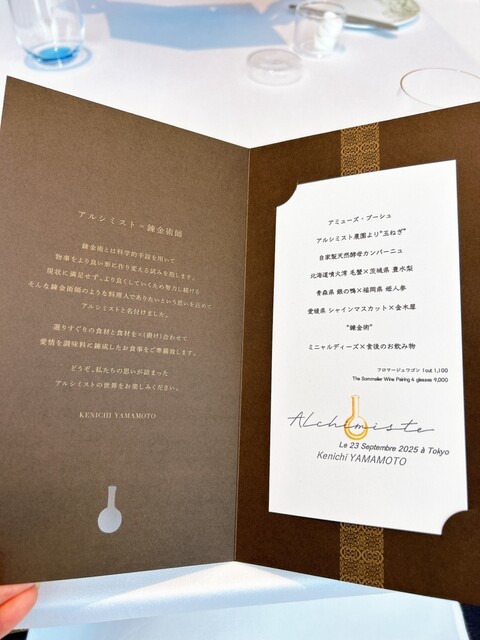 アルシミスト=錬金術師
錬金術とは科学的手段を用いて
物事をより良い形に作り変える試みを指します。
現状に満足せず、より良くしていくため努力し続ける
そんな錬金術師のような料理人でありたいという思いを込めて
アルシミストと名付けました。
選りすぐりの食材と食材を×(掛け)合わせて
愛情を調味料に錬成したお食事をご準備致します。
どうぞ、私たちの思いが詰まった
アルシミストの世界をお楽しみください。
KENICHI YAMAMOTO
アミューズ・ブーシュ
アルシミスト農園より"玉ねぎ"
自家製天然酵母カンパーニュ
北海道噴火湾 毛蟹×茨城県 豊水梨
青森県 銀の鴨×福岡県 姫人参
愛媛県 シャインマスカット×金木犀
"錬金術"
ミニャルディーズ×食後のお飲み物
フロマージュワゴン 1cut 1,100
The Sommelier Wine Pairing 4 glasses 9,000
Alchimiste
Le 23 Septembre 2025 à Tokyo
Kenichi YAMAMOTO